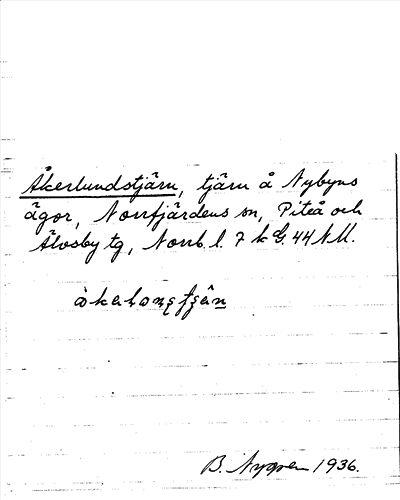 Åkerlundstjärn, tjärn å Nybyns
ägor, Norrfjärdens sn, Piteå och
Älvsby tg, Norrb. l. 7 k G. 44 NM.
B. Nygren 1936.